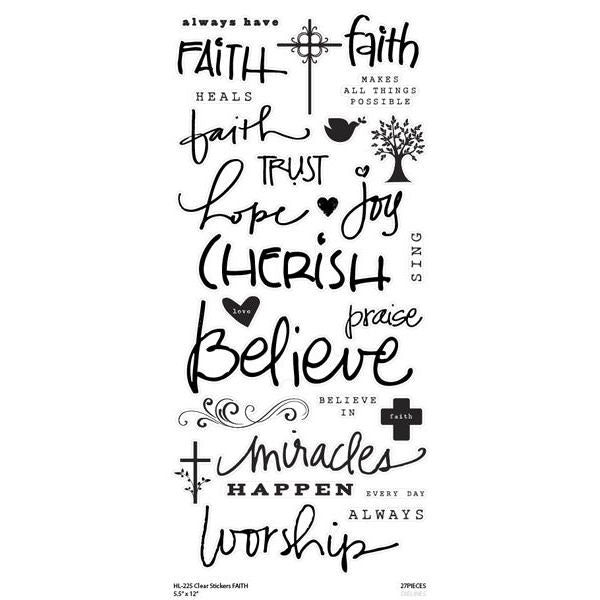 always have
FAITH
faith
HEALS
MAKES
ALL THINGS
POSSIBLE
faith
TRUST
hope
joy
SING
CHERISH
love
praise
Believe
BELIEVE
IN
faith
miracles
HAPPEN
EVERY DAY
ALWAYS
worship
HL-225 Clear Stickers FAITH
5.5" x 12"
27PIECES
DIELINES